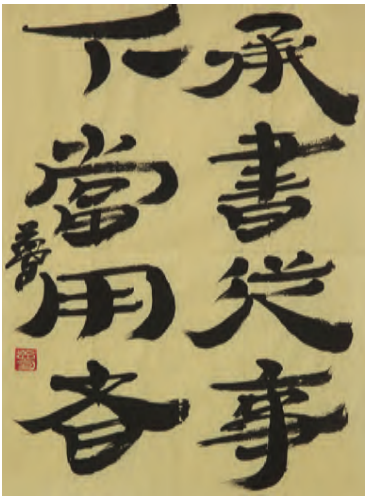 承書從事
下當用者